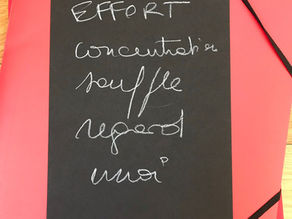 EFFORT
concentration
souffle
regard